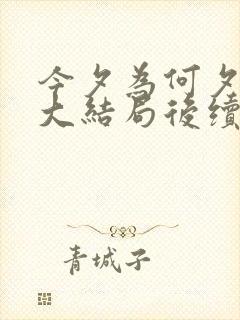 今夕為何夕
大結局後續
青城子